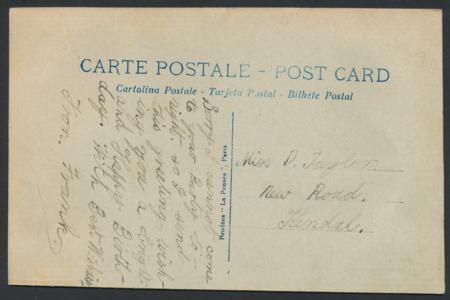 CARTE POSTALE - POST CARD
Cartolina Postale - Tarjeta Postal - Bilhete Postal
Sorry I cannot come
to your party to-
night. so I send
this greeting wish-
ing you a Bright
and Happy Birth-
day. With Best Wishes
From. Frank.
"La Pensée", Paris
Miss D. Taylor.
New Road.
Kendal.